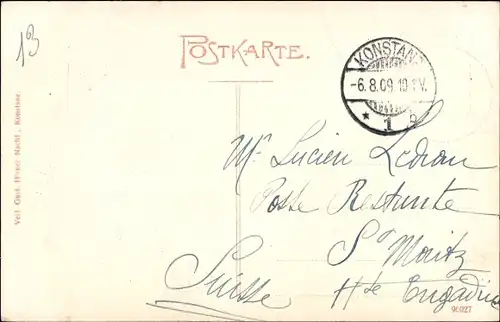 13
POSTKARTE.
KONSTANZ
-6.8.09.10-11V.
* 1 a
Mr Lucien Ledran
Poste Restante
St Moritz
Suisse Hte Engadine
Verl. Gust. Nachf., Konstanz
96027